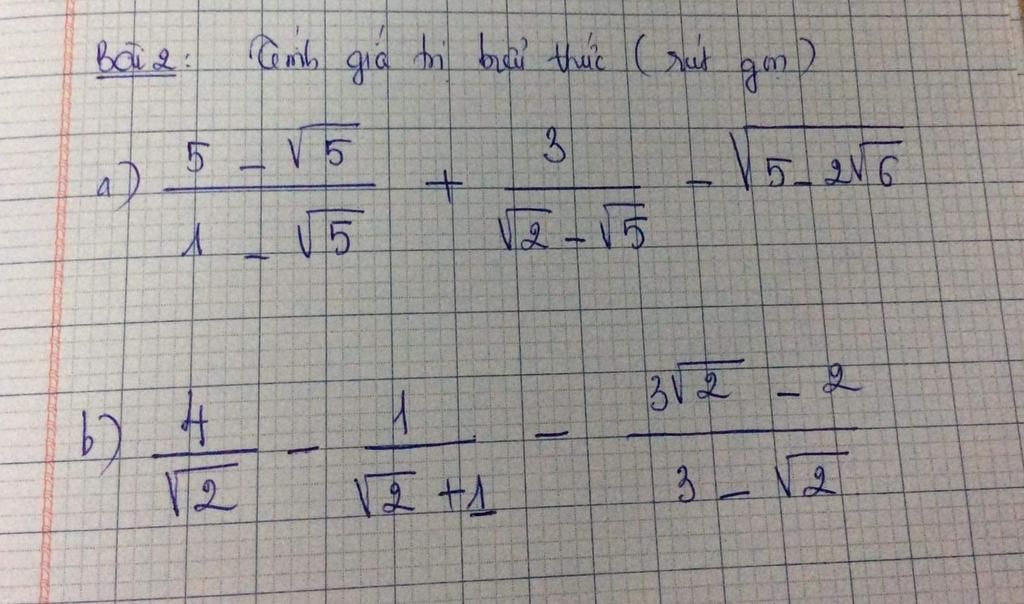 Bài 2: Tính giá trị biểu thức (rút gọn)
a) \frac{5 - \sqrt{5}}{1 - \sqrt{5}} + \frac{3}{\sqrt{2} - \sqrt{5}} - \sqrt{5 - 2\sqrt{6}}
b) \frac{4}{\sqrt{2}} - \frac{1}{\sqrt{2} + 1} - \frac{3\sqrt{2} - 2}{3 - \sqrt{2}}